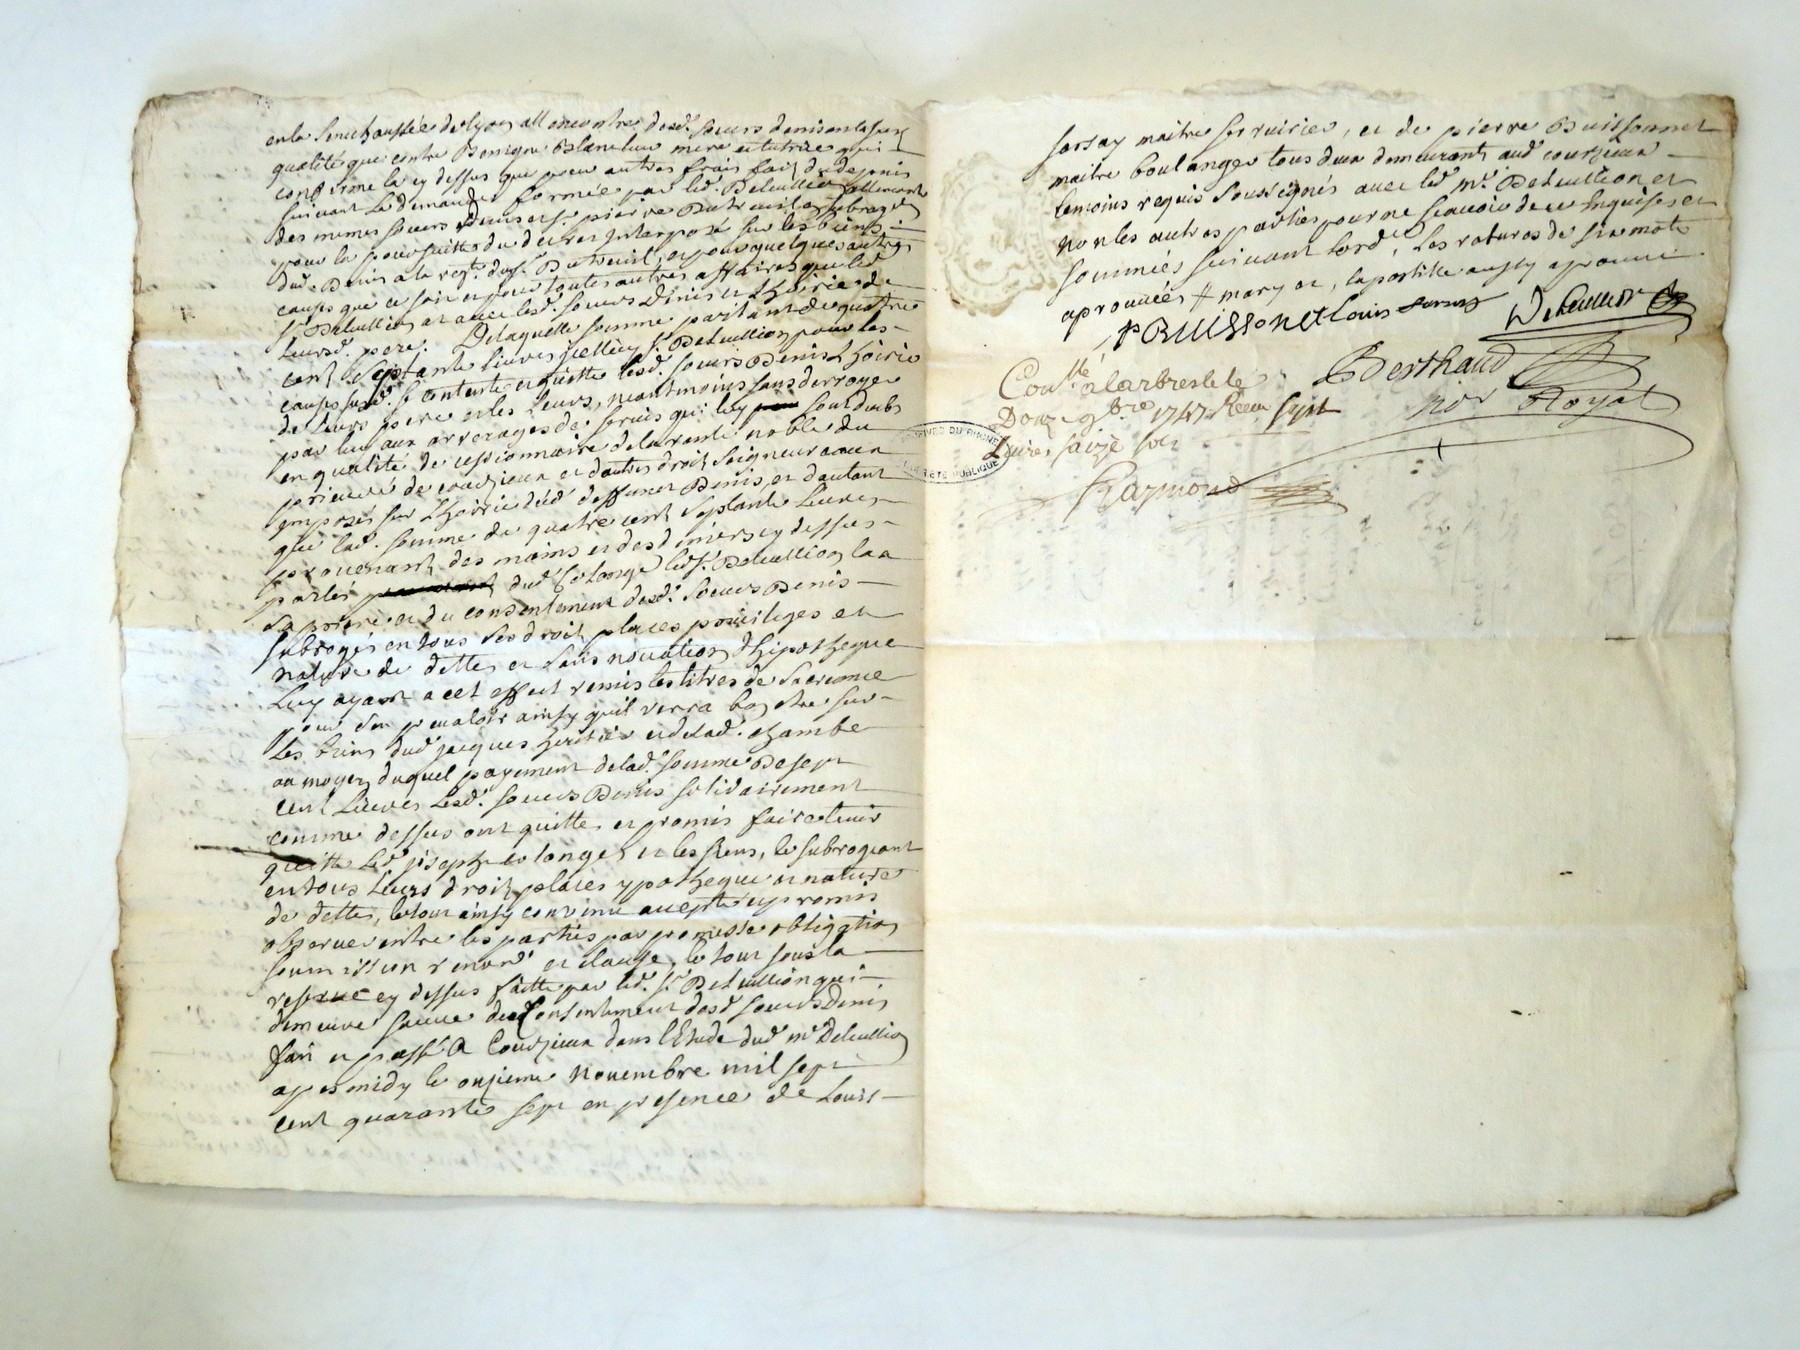 en la Senechaussée de Lyon all encontre desd. soeurs denis en la susd.
qualité que contre Benigne Blancheur mere et tutrice qui
confirme la cy dessus que pour autres frais faits du depuis
suivant la demande formée par led. Deleullion allencontre
des memes soeurs Denis et Sr pierre Dutreuil subrogé
pour la poursuitte du decret interposé sur les biens
dud. Denis a la reqte dud. Sr Dutreuil, et pour quelques autres
causes que ce soit et pour toutes autres affaires que led.
Sr Deleullion et avec lesd. soeurs Denis et lhoirie de
leursd. pere. De laquelle somme partant de quatre
cent septante livres icelluy Sr Deleullion pour les
causes susd. se contente et quitte lesd. soeurs Denis lhoirie
de leurs pere et les leurs, neantmoins sans derroger
par luy aux arrerages de servis qui luy sont dubs
en qualité de cessionnaire de la rente noble du
prieuré de courzieux et dautres droit seigneuriaux
imposés sur lhoirie dud. deffunct Denis, et dautant
que lad. somme de quatre cent septante livres
provenant des mains et des deniers cy dessus
parlés dud. Colonge led. Sr Deleullion la a
sa priere et du consentement desd. soeurs Denis
subrogés en tous ses droit places privileges et
nature de dette et sans novation dhipotheque
Luy ayant a cet effect remis les titres de sa creance
pour sen prevaloir ainsy quil verra bon etre sur
les biens dud. jacques heritier et de lad. chambe
au moyen duquel payement de lad. somme de sept
cent livres lesd. soeurs Denis solidairement
comme dessus ont quitté et promis faire tenir
quitte led. joseph colonge et les siens, le subrogeant
en tous leurs droit places ypotheque et nature
de dette, le tout ainsy convenu accepté et promis
observer entre les parties par promesse obligation
soumission renond. et clause, le tout sous la
reserve cy dessus faitte par led. Sr Deleullion qui
demeure sauve du consentement desd. soeurs Denis
fait et passé A Courzieux dans l'Etude dud. me Deleullion
apres midy le onzieme novembre mil sept
cent quarante sept en presence de Louis
sarsay maitre serrurier, et de pierre Buissonnet
maitre boulanger tous deux demeurants aud. courzieux
temoins requis soussignés avec led. me Deleullion et
non les autres parties pour ne scavoir de ce enquises et
sommées suivant lord. Les ratures de six mots
aprouvées # mary et, la postille aussy aprouvé
P Buissonet Louis sarsay Deleullion
Berthaud
Nore Royal
Conllé a larbresle le
Douze 9bre 1747 Receu sept
Livres saize sols
Raymond
ARCHIVES DU RHONE
PROPRIÉTÉ PUBLIQUE